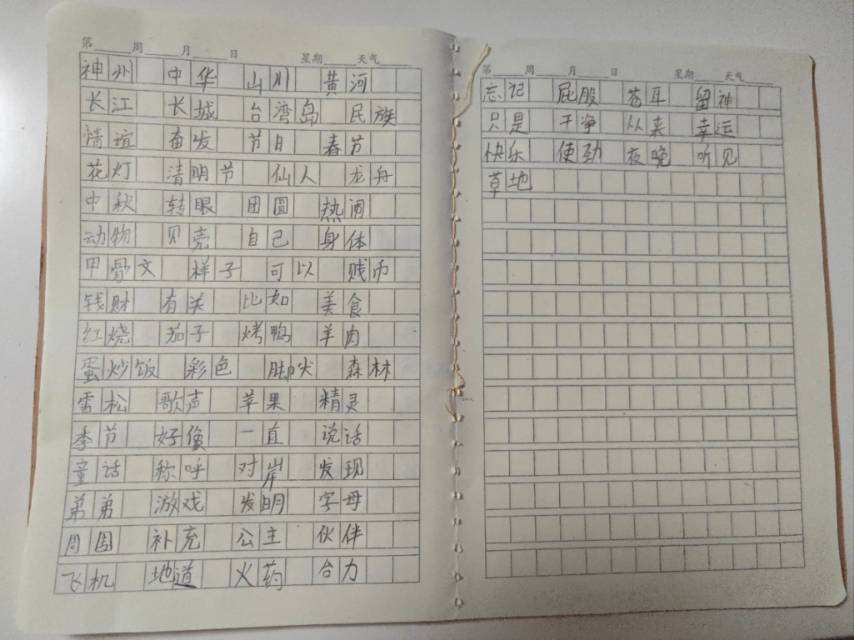 第 周 月 日 星期 天气
神州 中华 山川 黄河
长江 长城 台湾岛 民族
情谊 奋发 节日 春节
花灯 清明节 仙人 龙舟
中秋 转眼 团圆 热闹
动物 贝壳 自己 身体
甲骨文 样子 可以 贱币
钱财 有关 比如 美食
红烧 茄子 烤鸭 羊肉
蛋炒饭 彩色 脚吠 森林
雪松 歌声 苹果 精灵
季节 好像 一直 说话
童话 称呼 对岸 发现
弟弟 游戏 发明 字母
周围 补充 公主 伙伴
飞机 地道 火药 合力
第 周 月 日 星期 天气
忘记 屁股 苍耳 留神
只是 干净 从来 幸运
快乐 使劲 夜晚 听见
草地